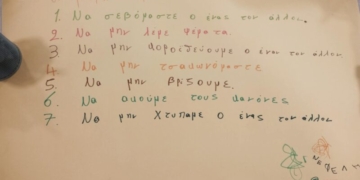 1. Να σεβόμαστε ο ένας τον άλλον.
2. Να μην λέμε ψέματα
3. Να μην κοροϊδεύουμε ο ένας τον άλλον
4. Να μην τσακωνόμαστε
5. Να μην βρίζουμε.
6. Να ακούμε τους κανόνες
7. Να μην χτυπάμε ο ένας τον άλλον